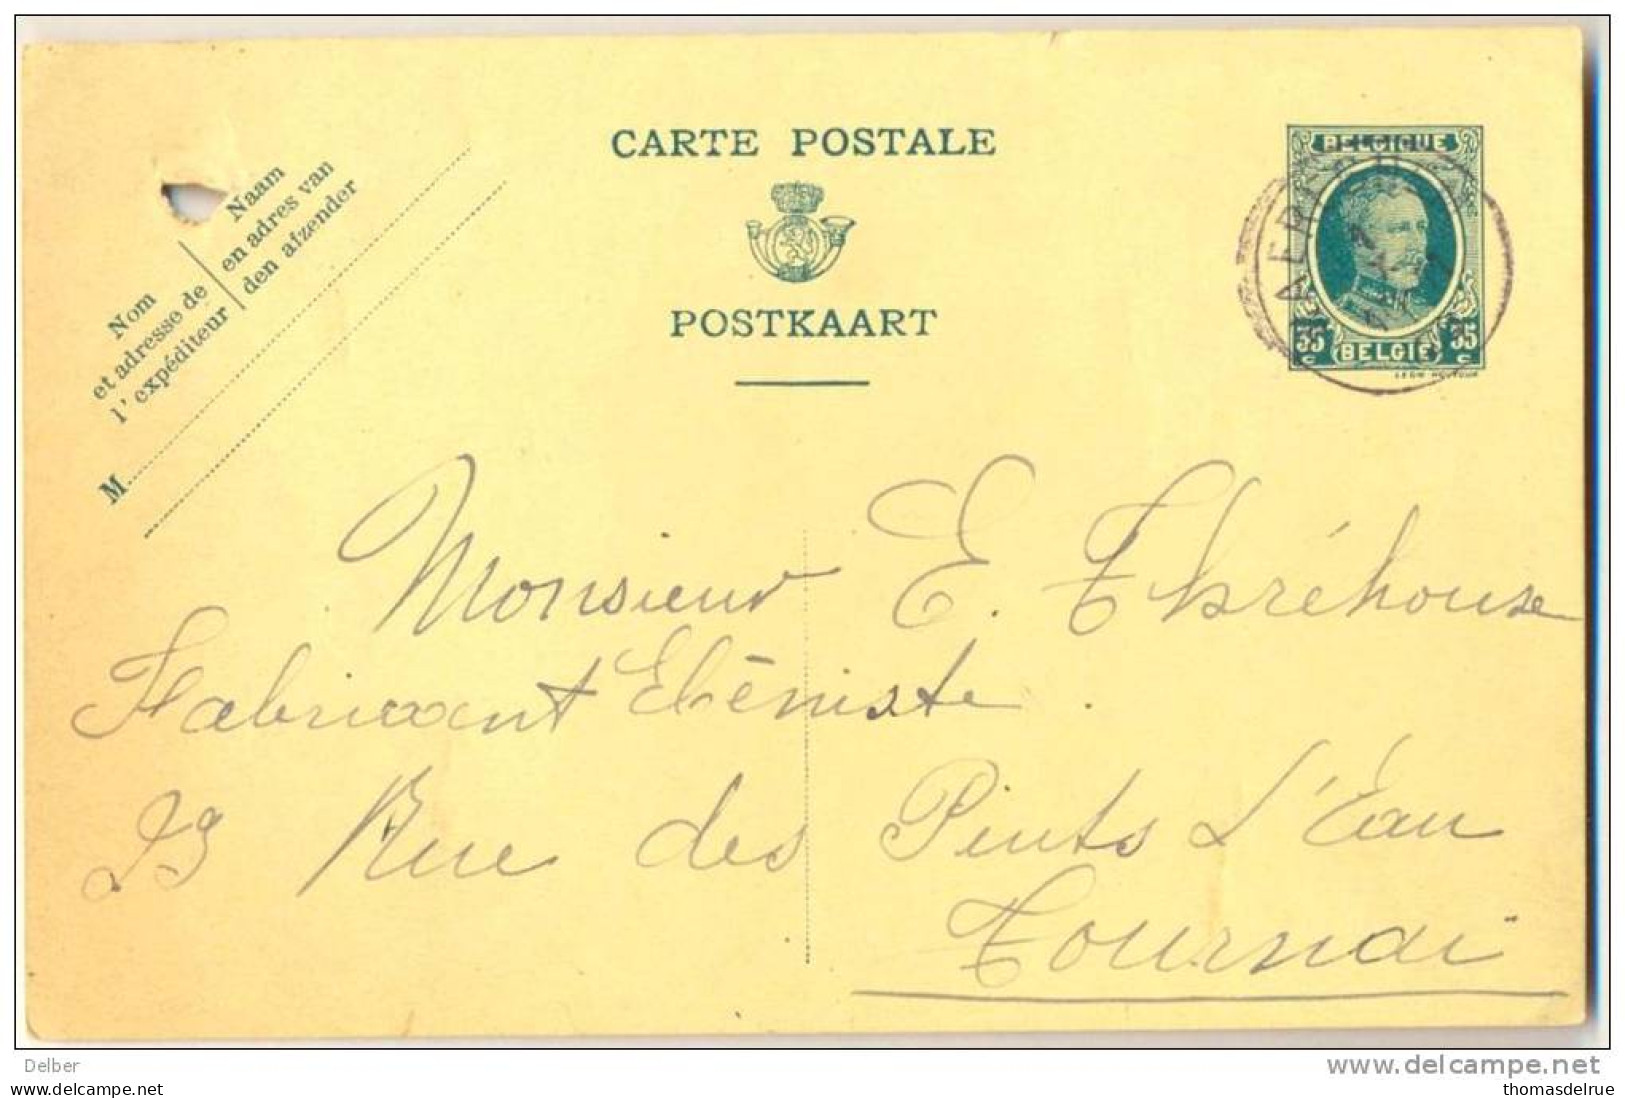 CARTE POSTALE
POSTKAART
Nom
et adresse de
l'expéditeur
Naam
en adres van
den afzender
M
BELGIQUE
35 c BELGIË 35 c
Monsieur E. Thréhouse
Fabricant Ebéniste.
29 Rue des Pints L'Eau
Tournai
Delber
delcampe.net
copyright@delcampe.net
thomasdelrue